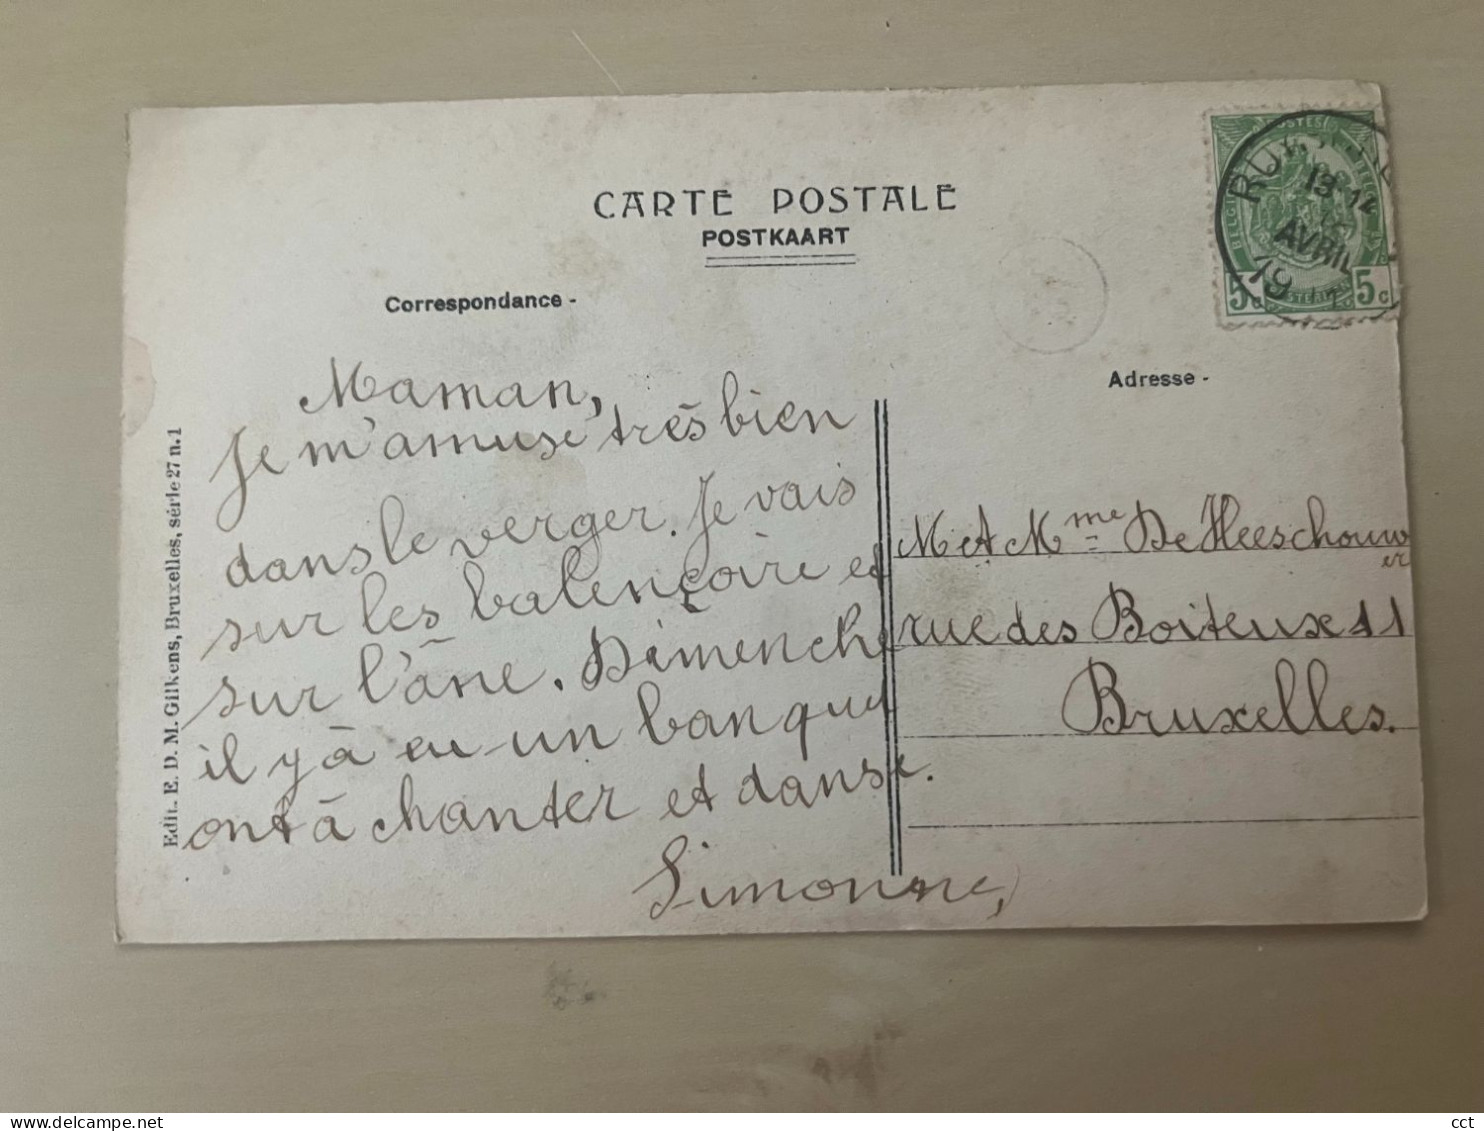 CARTE POSTALE
POSTKAART
Correspondance -
Maman,
Je m'amuse très bien
dans le verger. Je vais
sur les balençoire et
sur l'âne. Dimenche
il y à eu un banquet
ont à chanter et danse.
Simonne,
Edit. E. D. M. Gilkens, Bruxelles, série 27 n. 1
13-14
AVRIL
19
5c
5c
Adresse -
M et Mme De Heeschouw
er
rue des Boiteux 11
Bruxelles.
cct